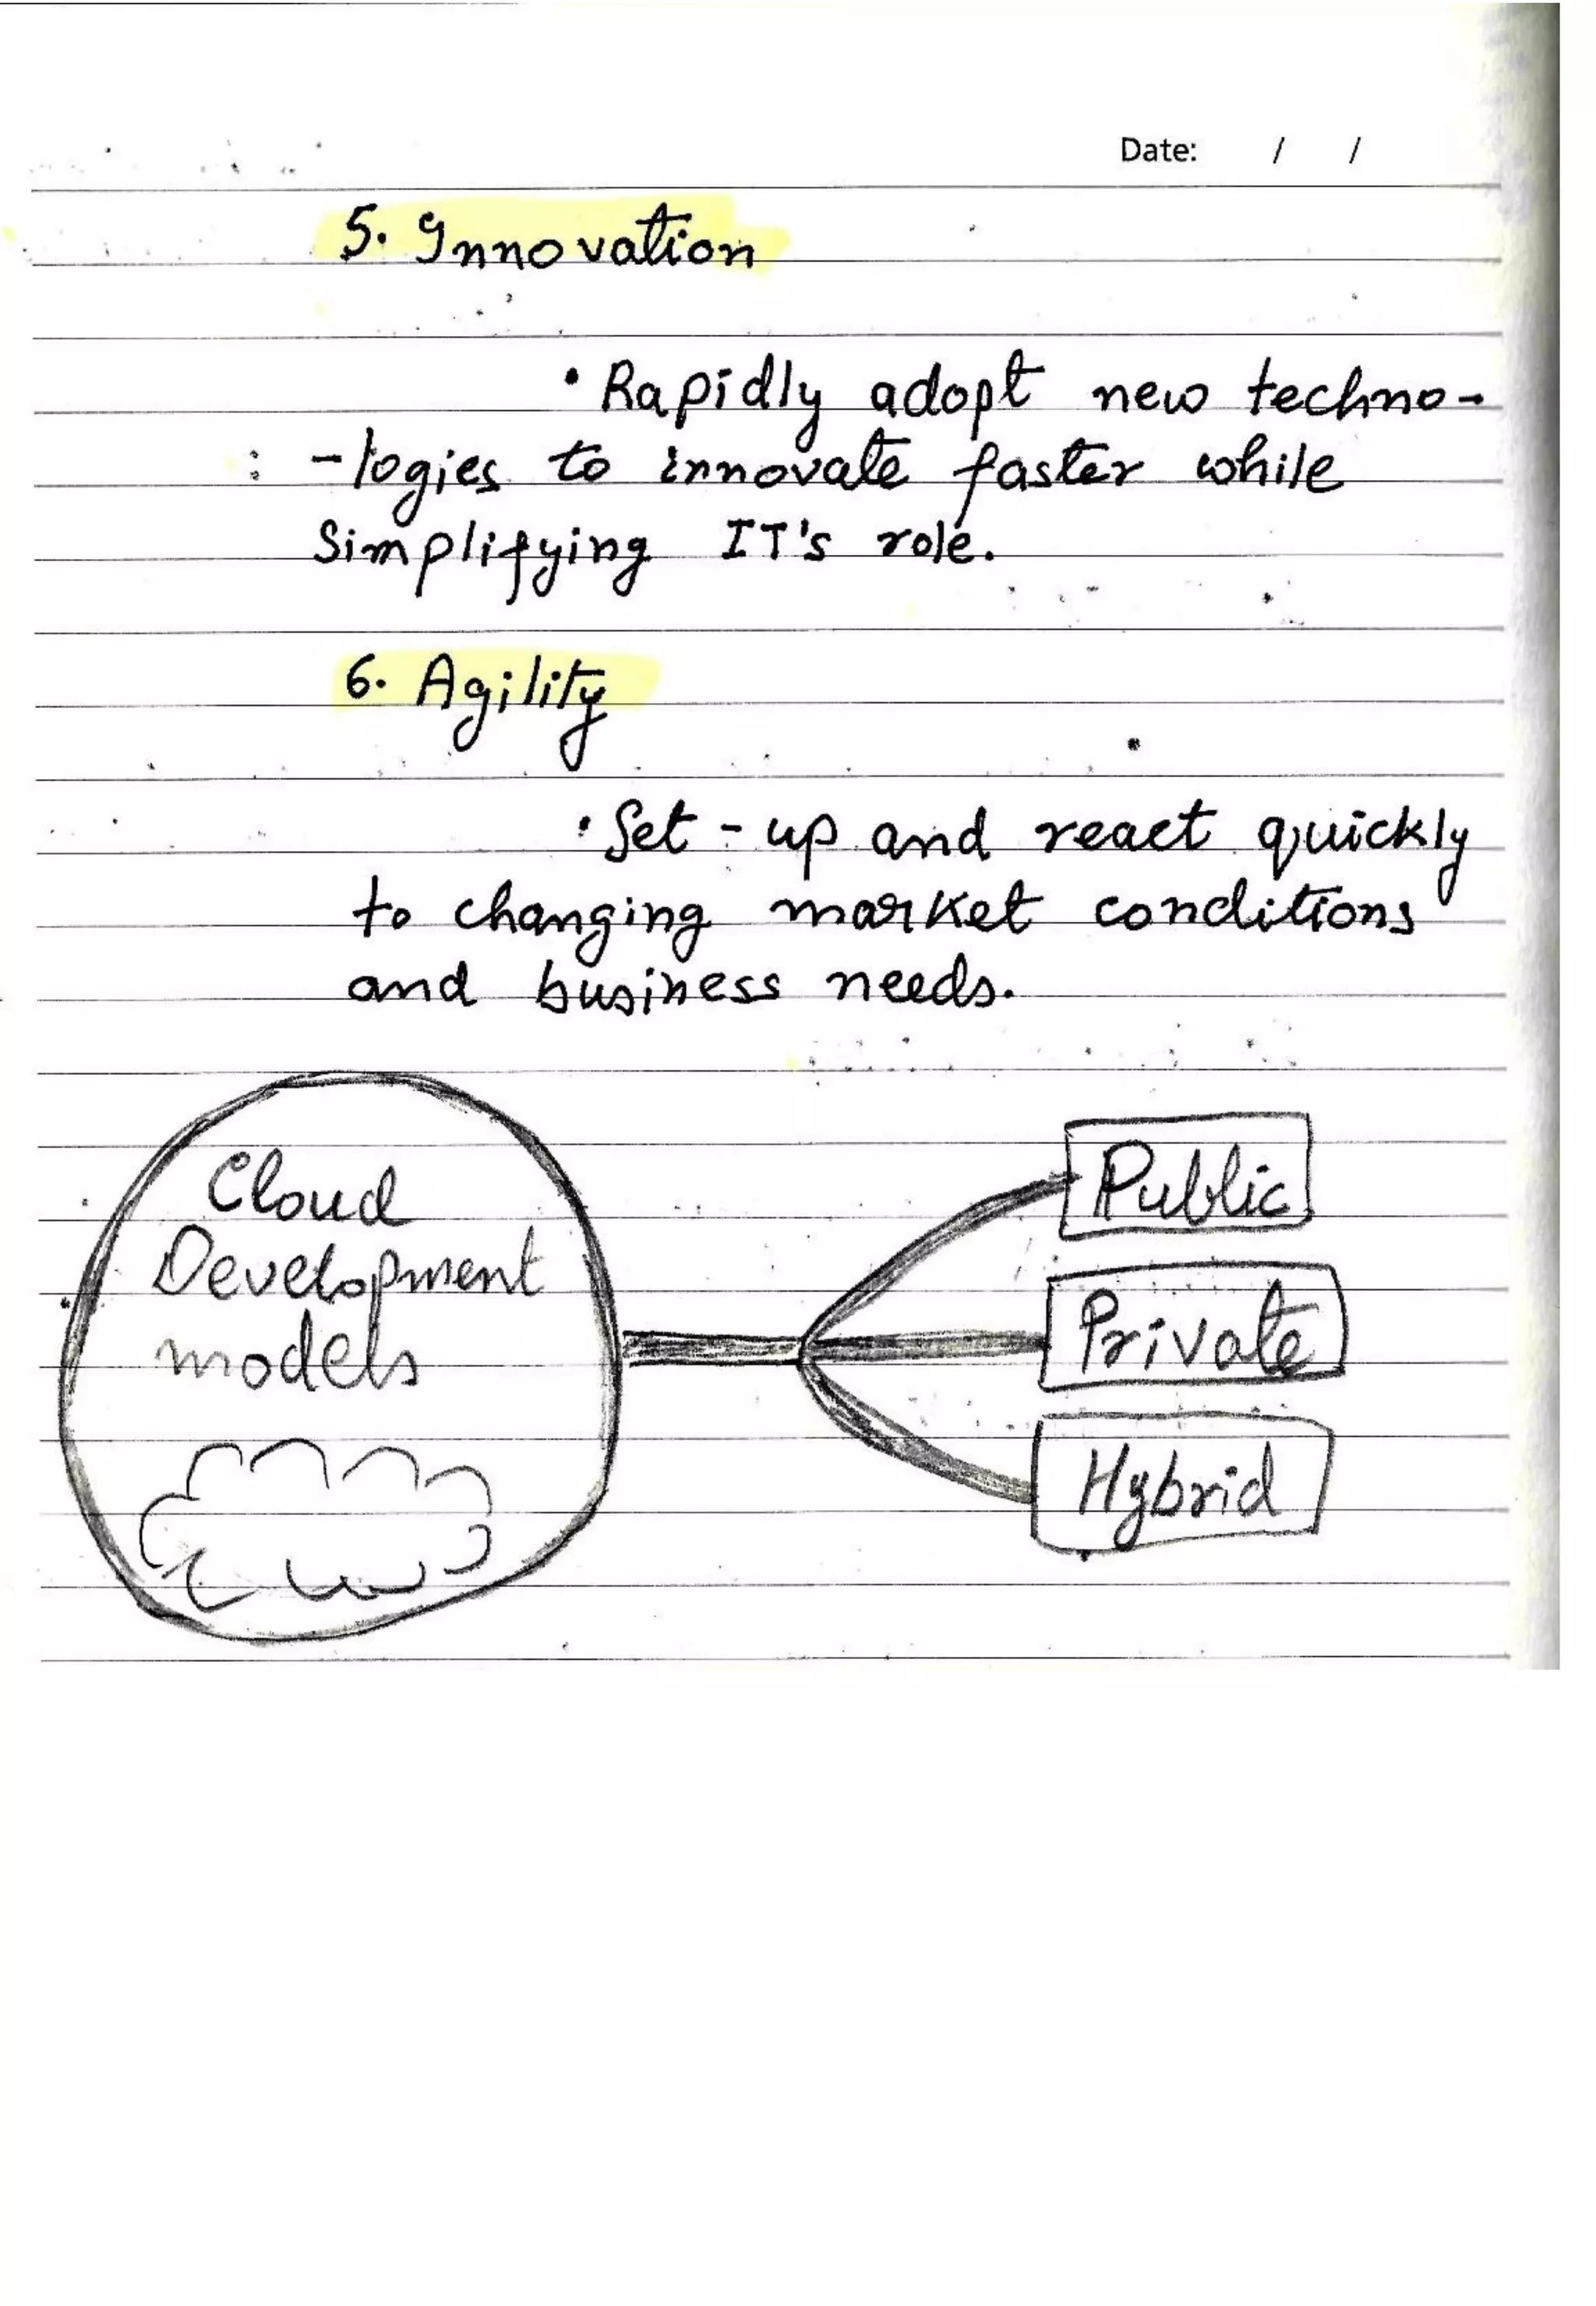 Date: / /
5. Innovation
• Rapidly adopt new techno-
: -logies to innovate faster while
Simplifying IT's role.
6. Agility
• Set-up and react quickly
to changing market conditions
and business needs.
Cloud
Development
models
Public
Private
Hybrid